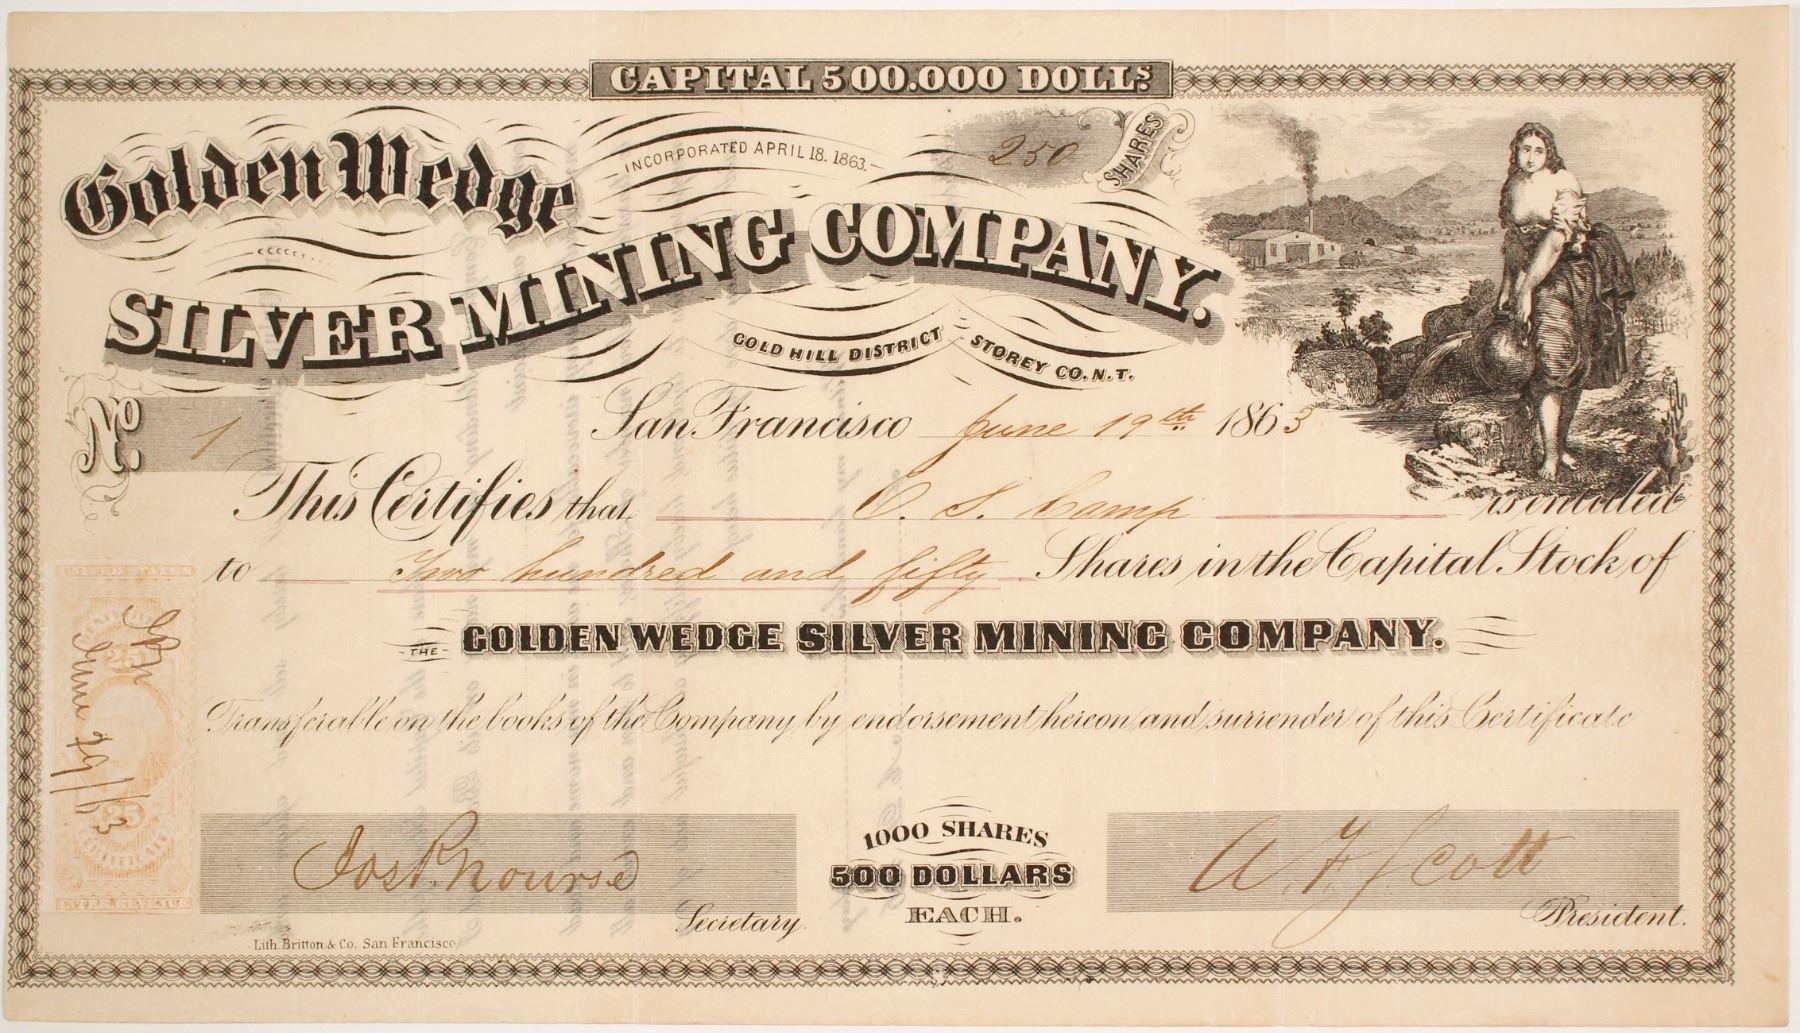 CAPITAL 500.000 DOLLS.
Golden Wedge
INCORPORATED APRIL 18. 1863.
250 SHARES
SILVER MINING COMPANY.
GOLD HILL DISTRICT - STOREY CO. N. T.
No. 1
San Francisco June 19th. 1863
This Certifies that C. S. Camp is entitled
to Two hundred and fifty Shares in the Capital Stock of
-THE- GOLDEN WEDGE SILVER MINING COMPANY.
Transferable on the books of the Company by endorsement hereon and surrender of this Certificate
UNITED STATES
25
JPN
June 19/63
CERTIFICATE
INTER. REVENUE
Jos. P. Nourse
Secretary.
1000 SHARES
500 DOLLARS
EACH.
A. F. Scott
President.
Lith. Britton & Co. San Francisco